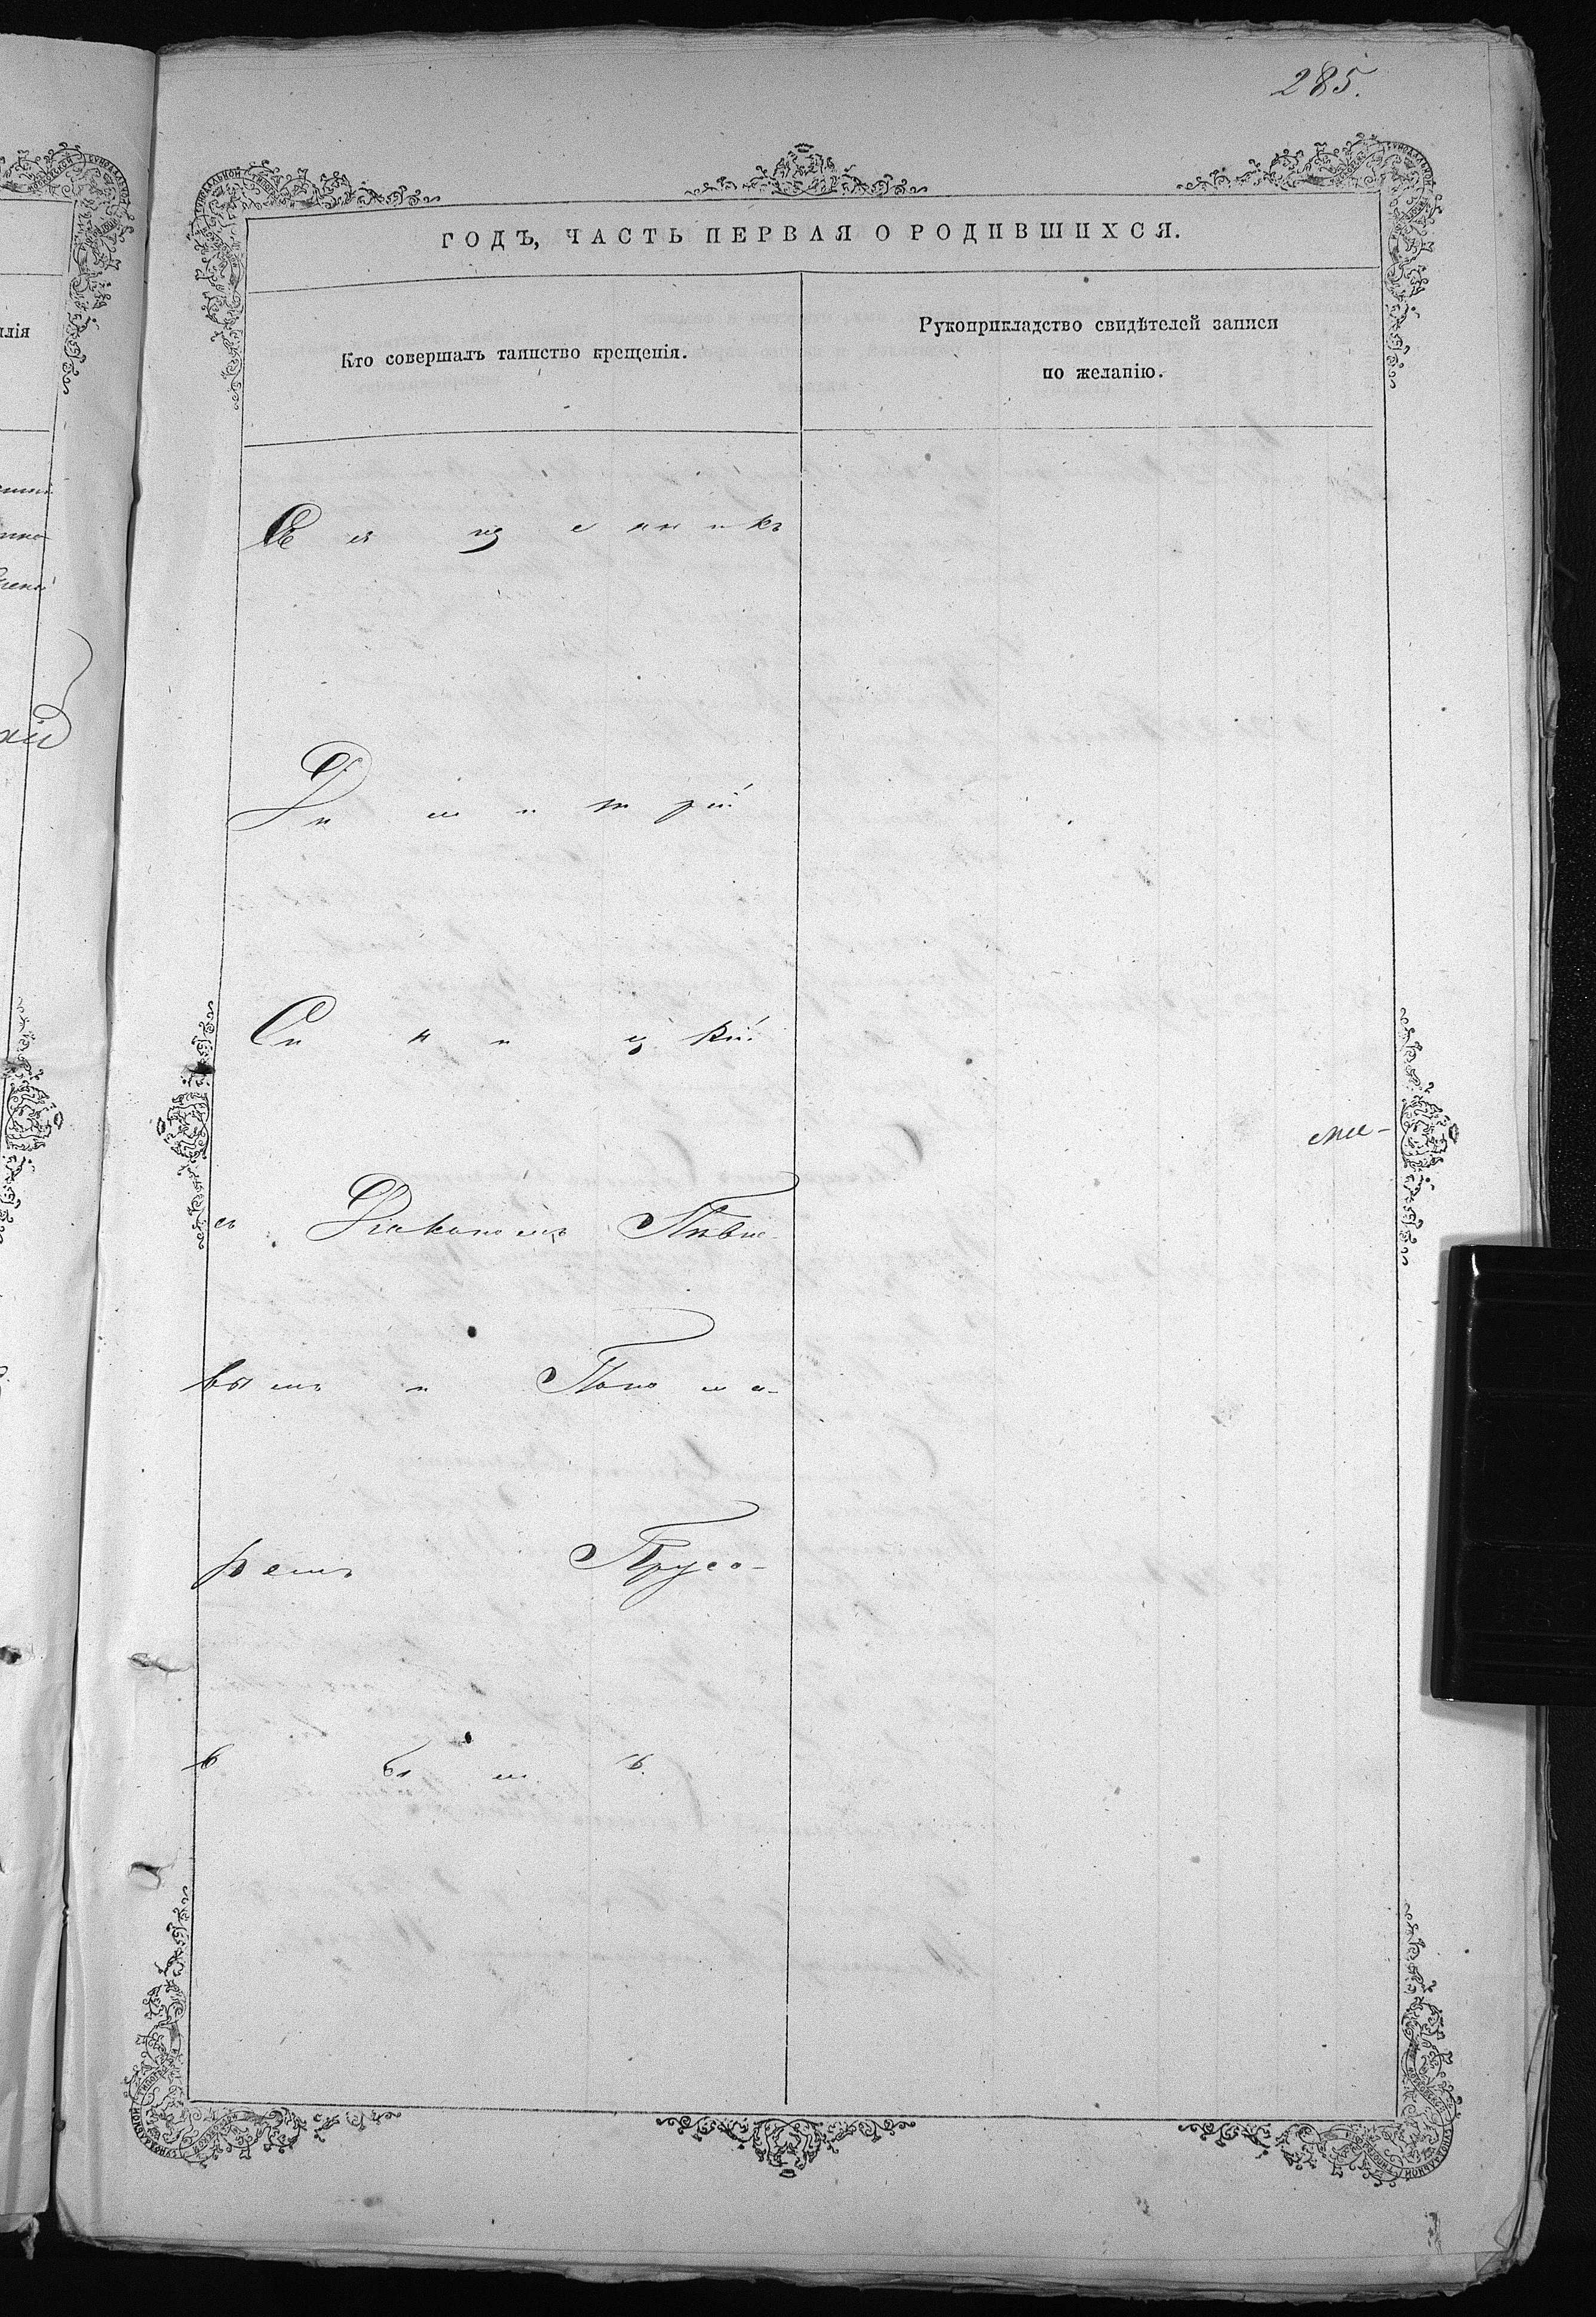 285.
ГОДЪ, ЧАСТЬ ПЕРВАЯ О РОДИВШИХСЯ.
Кто совершалъ таинство крещенія.
Рукоприкладство свидѣтелей записи
по желанію.
Священникъ
Димитрій
Синицкій
съ Діакономъ Пѣвне-
вымъ и Понома-
ремъ Прусо-
вымъ.